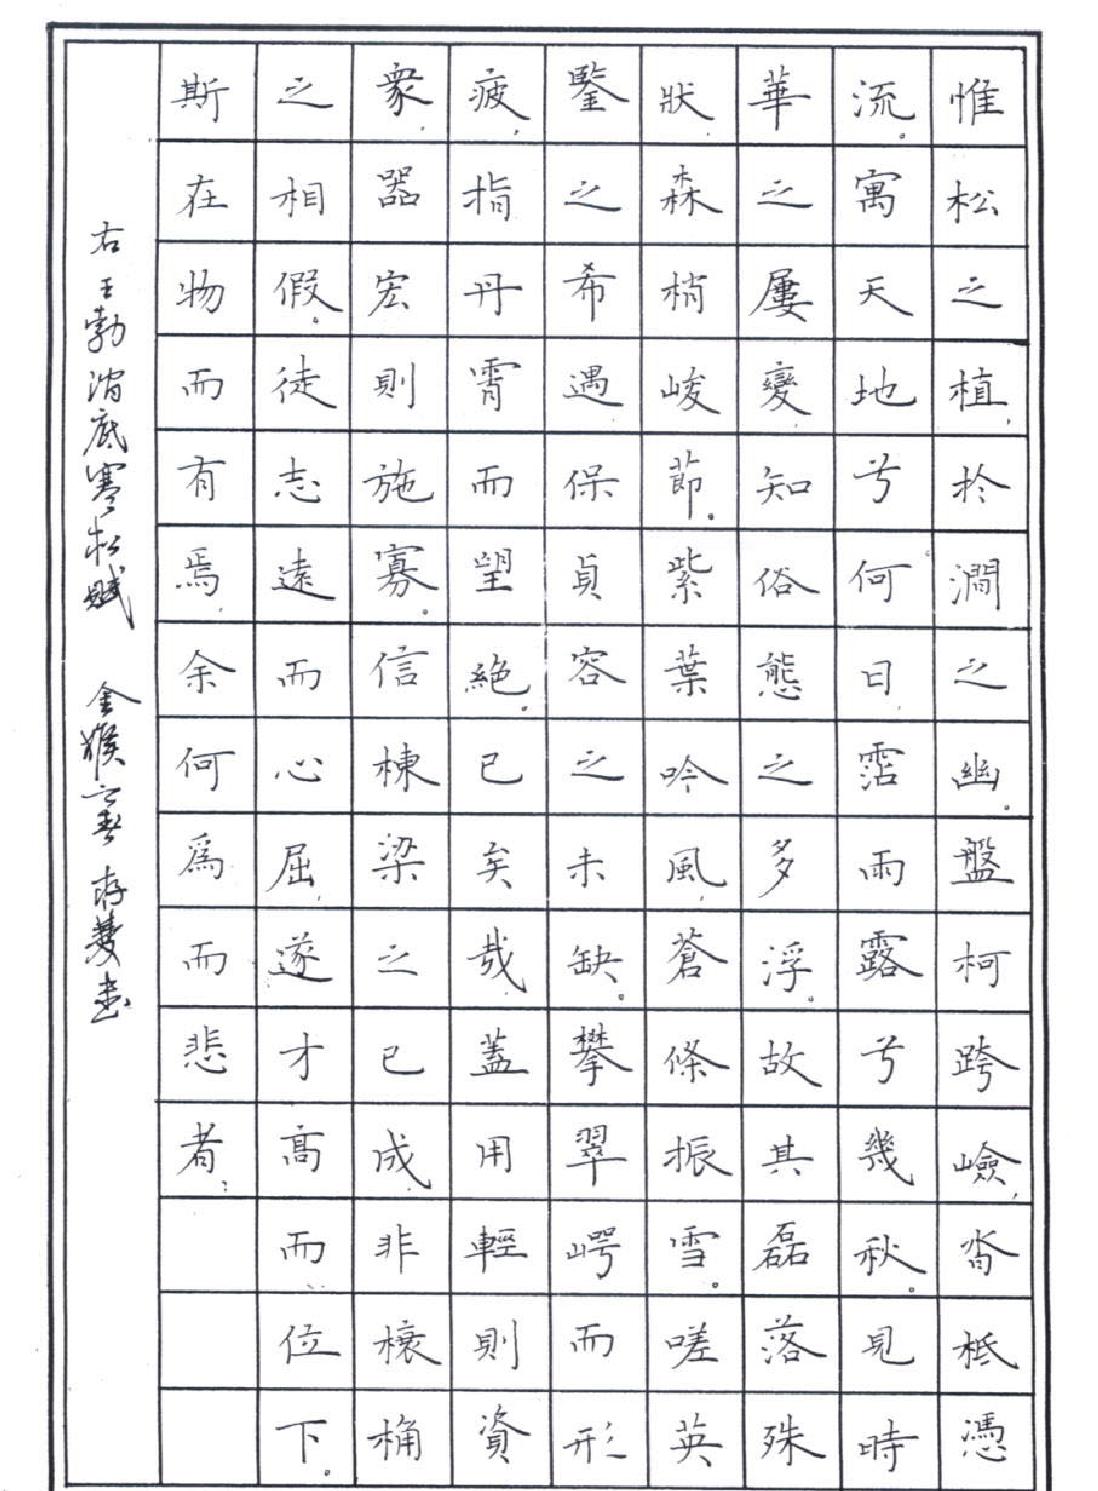 惟松之植,於澗之幽。盤柯跨嶮,沓柢憑
流。寓天地兮何日,霑雨露兮幾秋。見時
華之屢變,知俗態之多浮。故其磊落殊
狀,森梢峻節。紫葉吟風,蒼條振雪。嗟英
鑒之希遇,保貞容之未缺。攀翠崿而形
疲,指丹霄而望絕。已矣哉,蓋用輕則資
衆,器宏則施寡。信棟梁之已成,非榱桷
之相假。徒志遠而心屈,遂才高而位下。
斯在物而有焉,余何爲而悲者
右王勃澗底寒松賦 金猴之春 存菱書